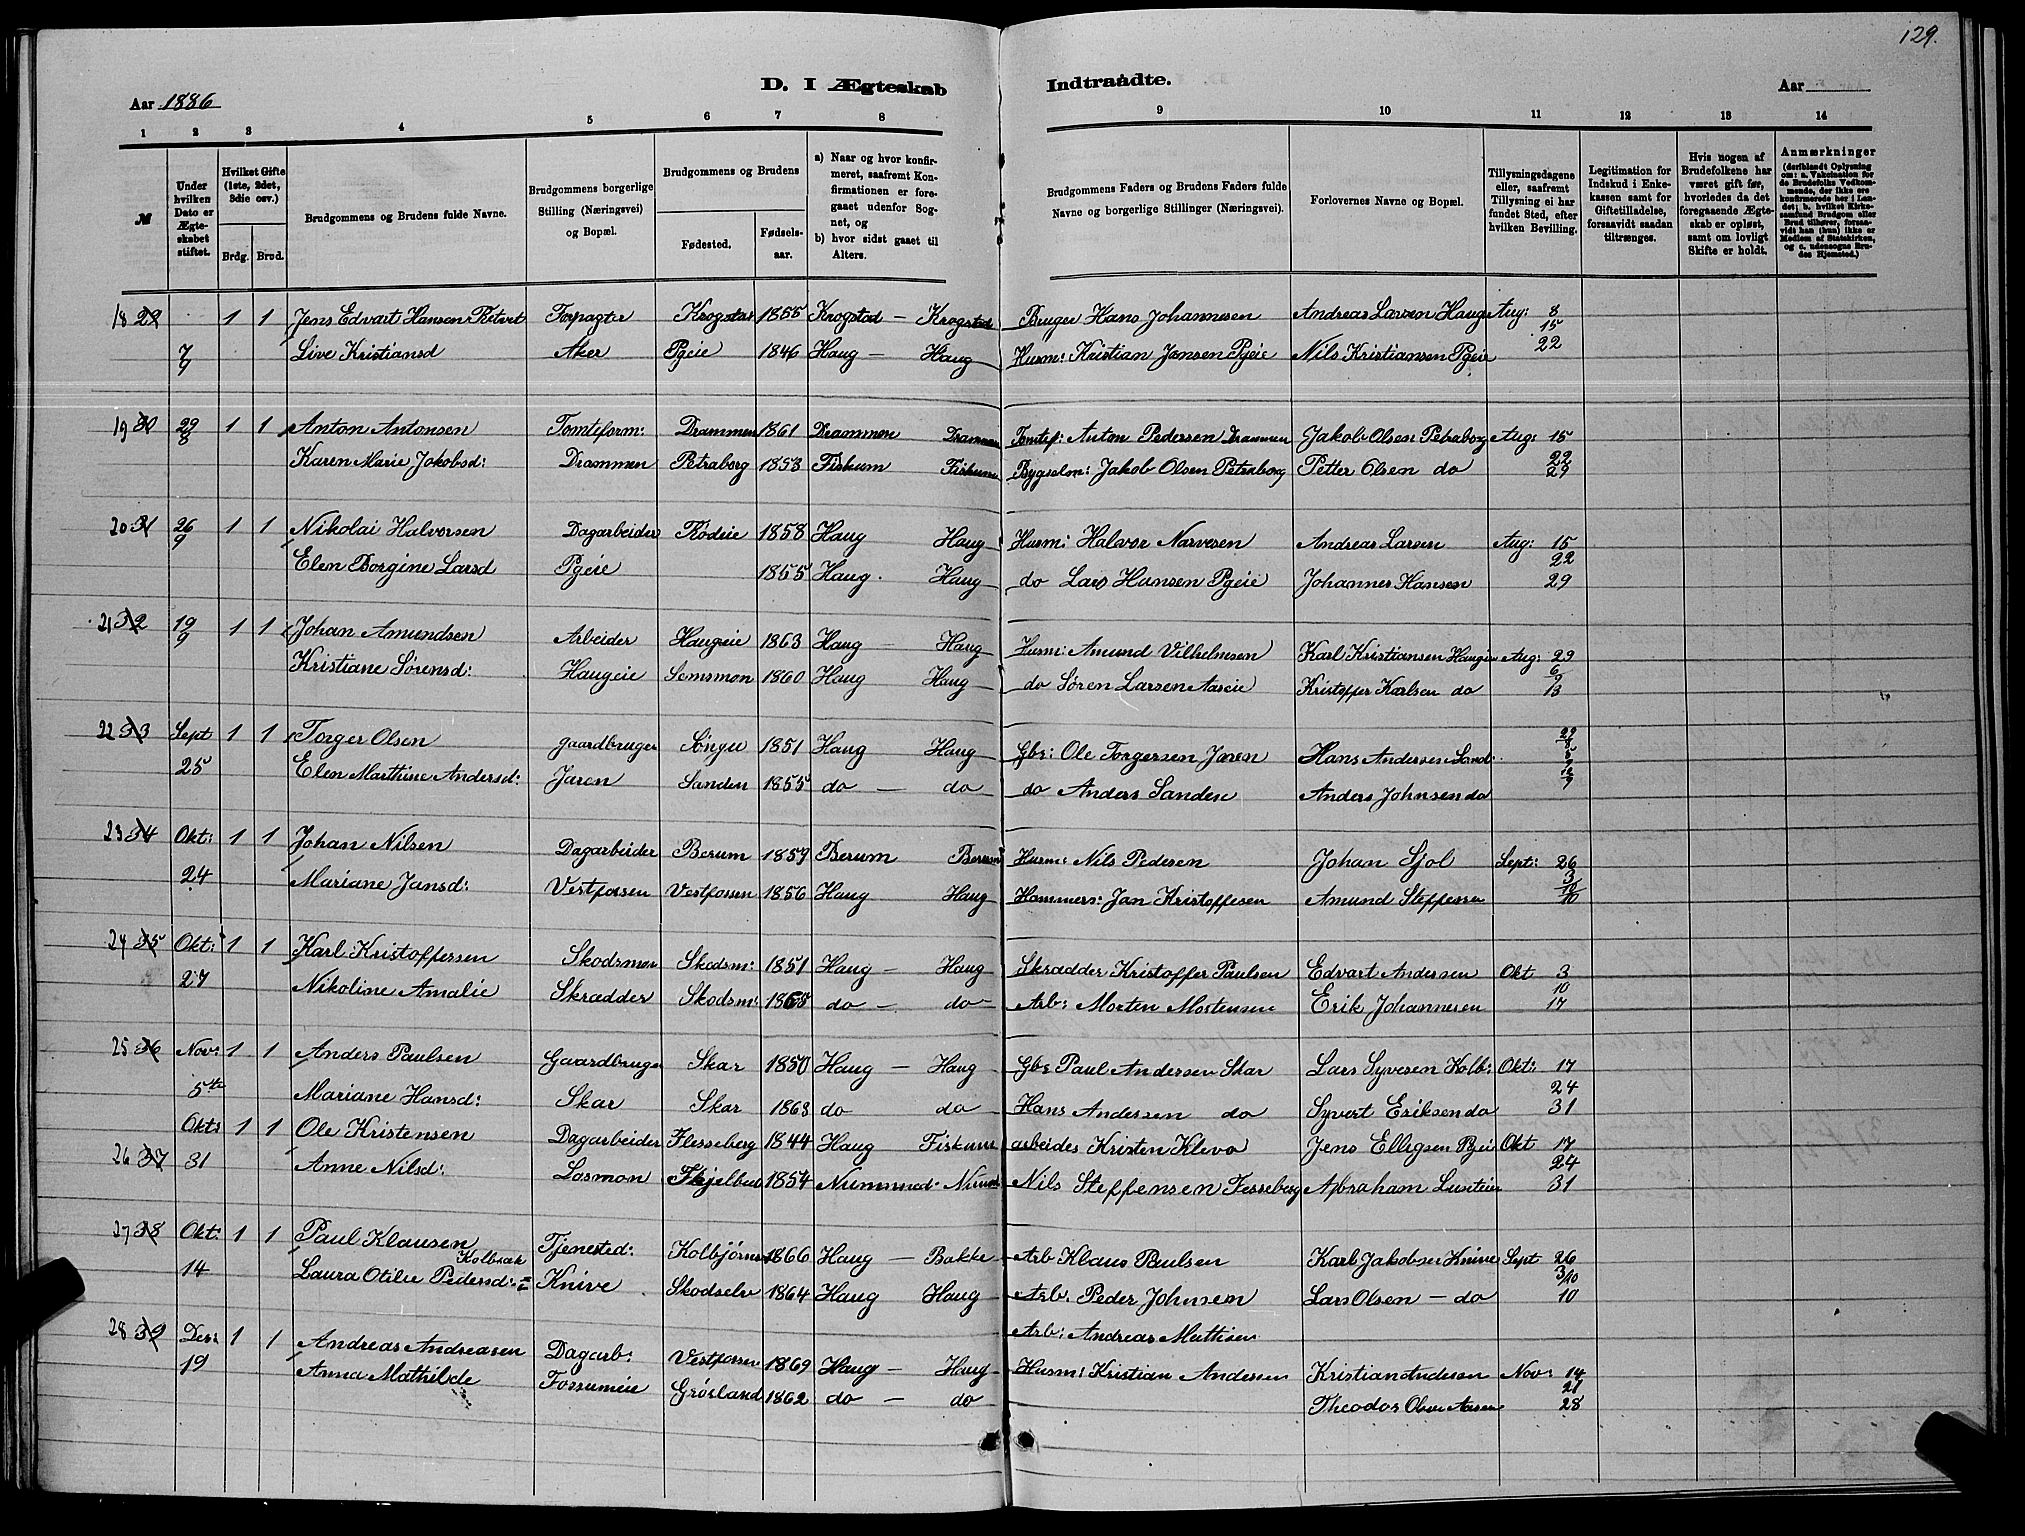 129.
D. I Ægteskab Indtraadte.
Aar 1886 Aar
1 2 3 4 5 6 7 8 9 10 11 12 13 14
№
Under hvilken Dato er Ægteskabet stiftet.
Hvilket Gifte (1ste, 2det, 3die osv.)
Brdg. Brud.
Brudgommens og Brudens fulde Navne.
Brudgommens borgerlige Stilling (Næringsvei) og Bopæl.
Brudgommens og Brudens
Fødested. Fødselsaar.
a) Naar og hvor konfirmeret, saafremt Konfirmationen er foregaaet udenfor Sognet, og
b) hvor sidst gaaet til Alters.
Brudgommens Faders og Brudens Faders fulde Navne og borgerlige Stillinger (Næringsvei).
Forlovernes Navne og Bopæl.
Tillysningsdagene eller, saafremt Tillysning ei har fundet Sted, efter hvilken Bevilling.
Legitimation for Indskud i Enkekassen samt for Giftetilladelse, forsaavidt saadan tiltrænges.
Hvis nogen af Brudefolkene har været gift før, hvorledes da det foregaaende Ægteskab er opløst, samt om lovligt Skifte er holdt.
Anmærkninger (deriblandt Oplysning om: a. Vakcination for de Brudefolks Vedkommende, der ikke ere konfirmerede her i Landet; b. hvilket Kirkesamfund Brudgom eller Brud tilhører, forsaavidt han (hun) ikke er Medlem af Statskirken, og c. udensogns Brudes Hjemsted.)
18 29 1 1 Jens Edvart Hansen Forpagter Krogstad 1855 Krogstad — Krogstad Bruger Hans Johannesen Andreas Larsen Haug Aug: 8 15
7/9 Live Kristiansd Aker Pgeie 1846 Haug — Haug Husm: Kristian Jensen Pgeie Nils Kristiansen Pgeie 22
19 30 29/8 1 1 Anton Antonsen Tomteform: Drammen 1861 Drammen Drammen Tomtef: Anton Pedersen Drammen Jakob Olsen Petraborg Aug: 15
Karen Marie Jakobsd: Drammen Petraborg 1853 Fiskum Fiskum Bygselm: Jakob Olsen Petraborg Petter Olsen do 22 29
20 31 26/9 1 1 Nikolai Halvorsen Dagarbeider Rødeie 1858 Haug Haug Husm: Halvor Narvesen Andreas Larsen Aug: 15 22
Elen Borgine Larsd Pgeie 1855 Haug. Haug do Lars Hansen Pgeie Johannes Hansen 29
21 32 19/9 1 1 Johan Amundsen Arbeider Haugeie 1863 Haug — Haug Husm: Amund Vilhelmsen Karl Kristiansen Haugeie Aug: 29
Kristiane Sørensd: Haugeie Semsmon 1860 Haug Haug do Søren Larsen Aaseie Kristoffer Karlsen do 6/9 13
22 33 Sept 1 1 Torger Olsen Gaardbruger Søngu 1851 Haug Haug Gbr: Ole Torgersen Jaren Hans Andersen Sand: 29/8
25 Elen Marthine Andersd: Jaren Sanden 1855 do — do do Anders Sanden Anders Johnsen do 5/9 12/9
23 34 Okt: 1 1 Johan Nilsen Dagarbeider Berum 1857 Berum Berum Husm: Nils Pedersen Johan Sjol Sept: 26
24 Mariane Jansd: Vestfossen Vestfossen 1856 Haug Haug Hammers: Jan Kristoffesen Amund Steffensen 3 10/10
24 35 Okt: 1 1 Karl Kristoffersen Skodsmon Skodsm: 1851 Haug — Haug Skrædder Kristoffer Paulsen Edvart Andersen Okt 3 10
27 Nikoline Amalie Skrædder Skodsm: 1868 do — do Arb: Morten Mortensen Erik Johannesen 17
25 36 Nov: 1 1 Anders Paulsen Gaardbruger Skar 1850 Haug — Haug Gbr Paul Andersen Skar Lars Syvesen Kolb: Okt: 17 24
5te Mariane Hansd: Skar Skar 1863 do do Hans Andersen do Syvert Eriksen do 31
26 37 Okt: 31 1 1 Ole Kristensen Dagarbeider Flesseberg 1844 Haug Fiskum arbeider Kristen Kleva Jens Elligsen Pgei Okt 17 24
Anne Nilsd: Losmon 1854 Nummed: Nils Steffensen Fesseberg Abraham 31
27 38 Okt: 1 1 Paul Klausen Tjenested: Kolbjørns 1866 Haug — Bakke Arb Klaus Paulsen Karl Jakobsen Knive Sept 26
14 Laura Otilie Pedersd: Kolbræk Knive Skodselv 1864 Haug Haug Arb: Peder Johnsen Lars Olsen — do 3/10 10
28 39 Des: 1 1 Andreas Andreasen Dagarb: Vestfossen 1869 Haug — Haug Arb: Andreas Mattisen
19 Anna Mathilde Fossumeie Grøsland 1862 do — do Husm: Kristian Andersen Kristian Andersen Nov: 14 21
Theodor Olsen 28